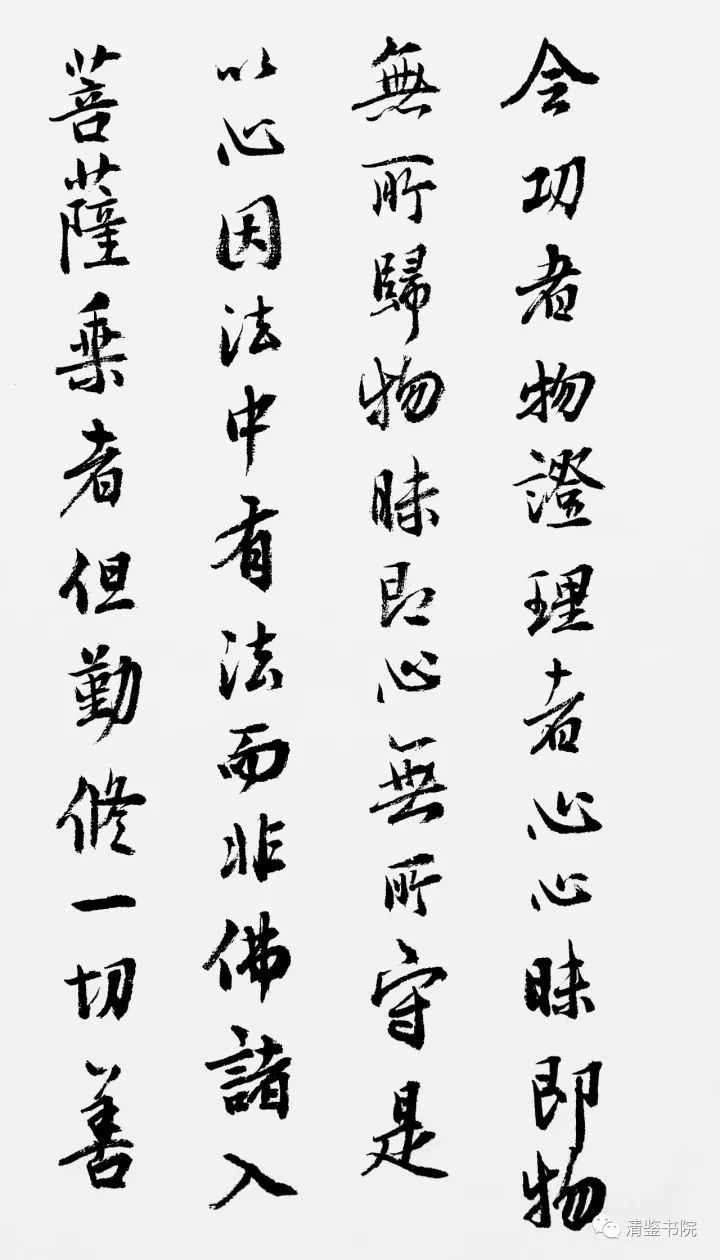 会功者物證理者心心昧即物
無所歸物昧即心無所守是
以心因法中有法而非佛諸入
菩薩乗者但勤修一切善
清鉴书院